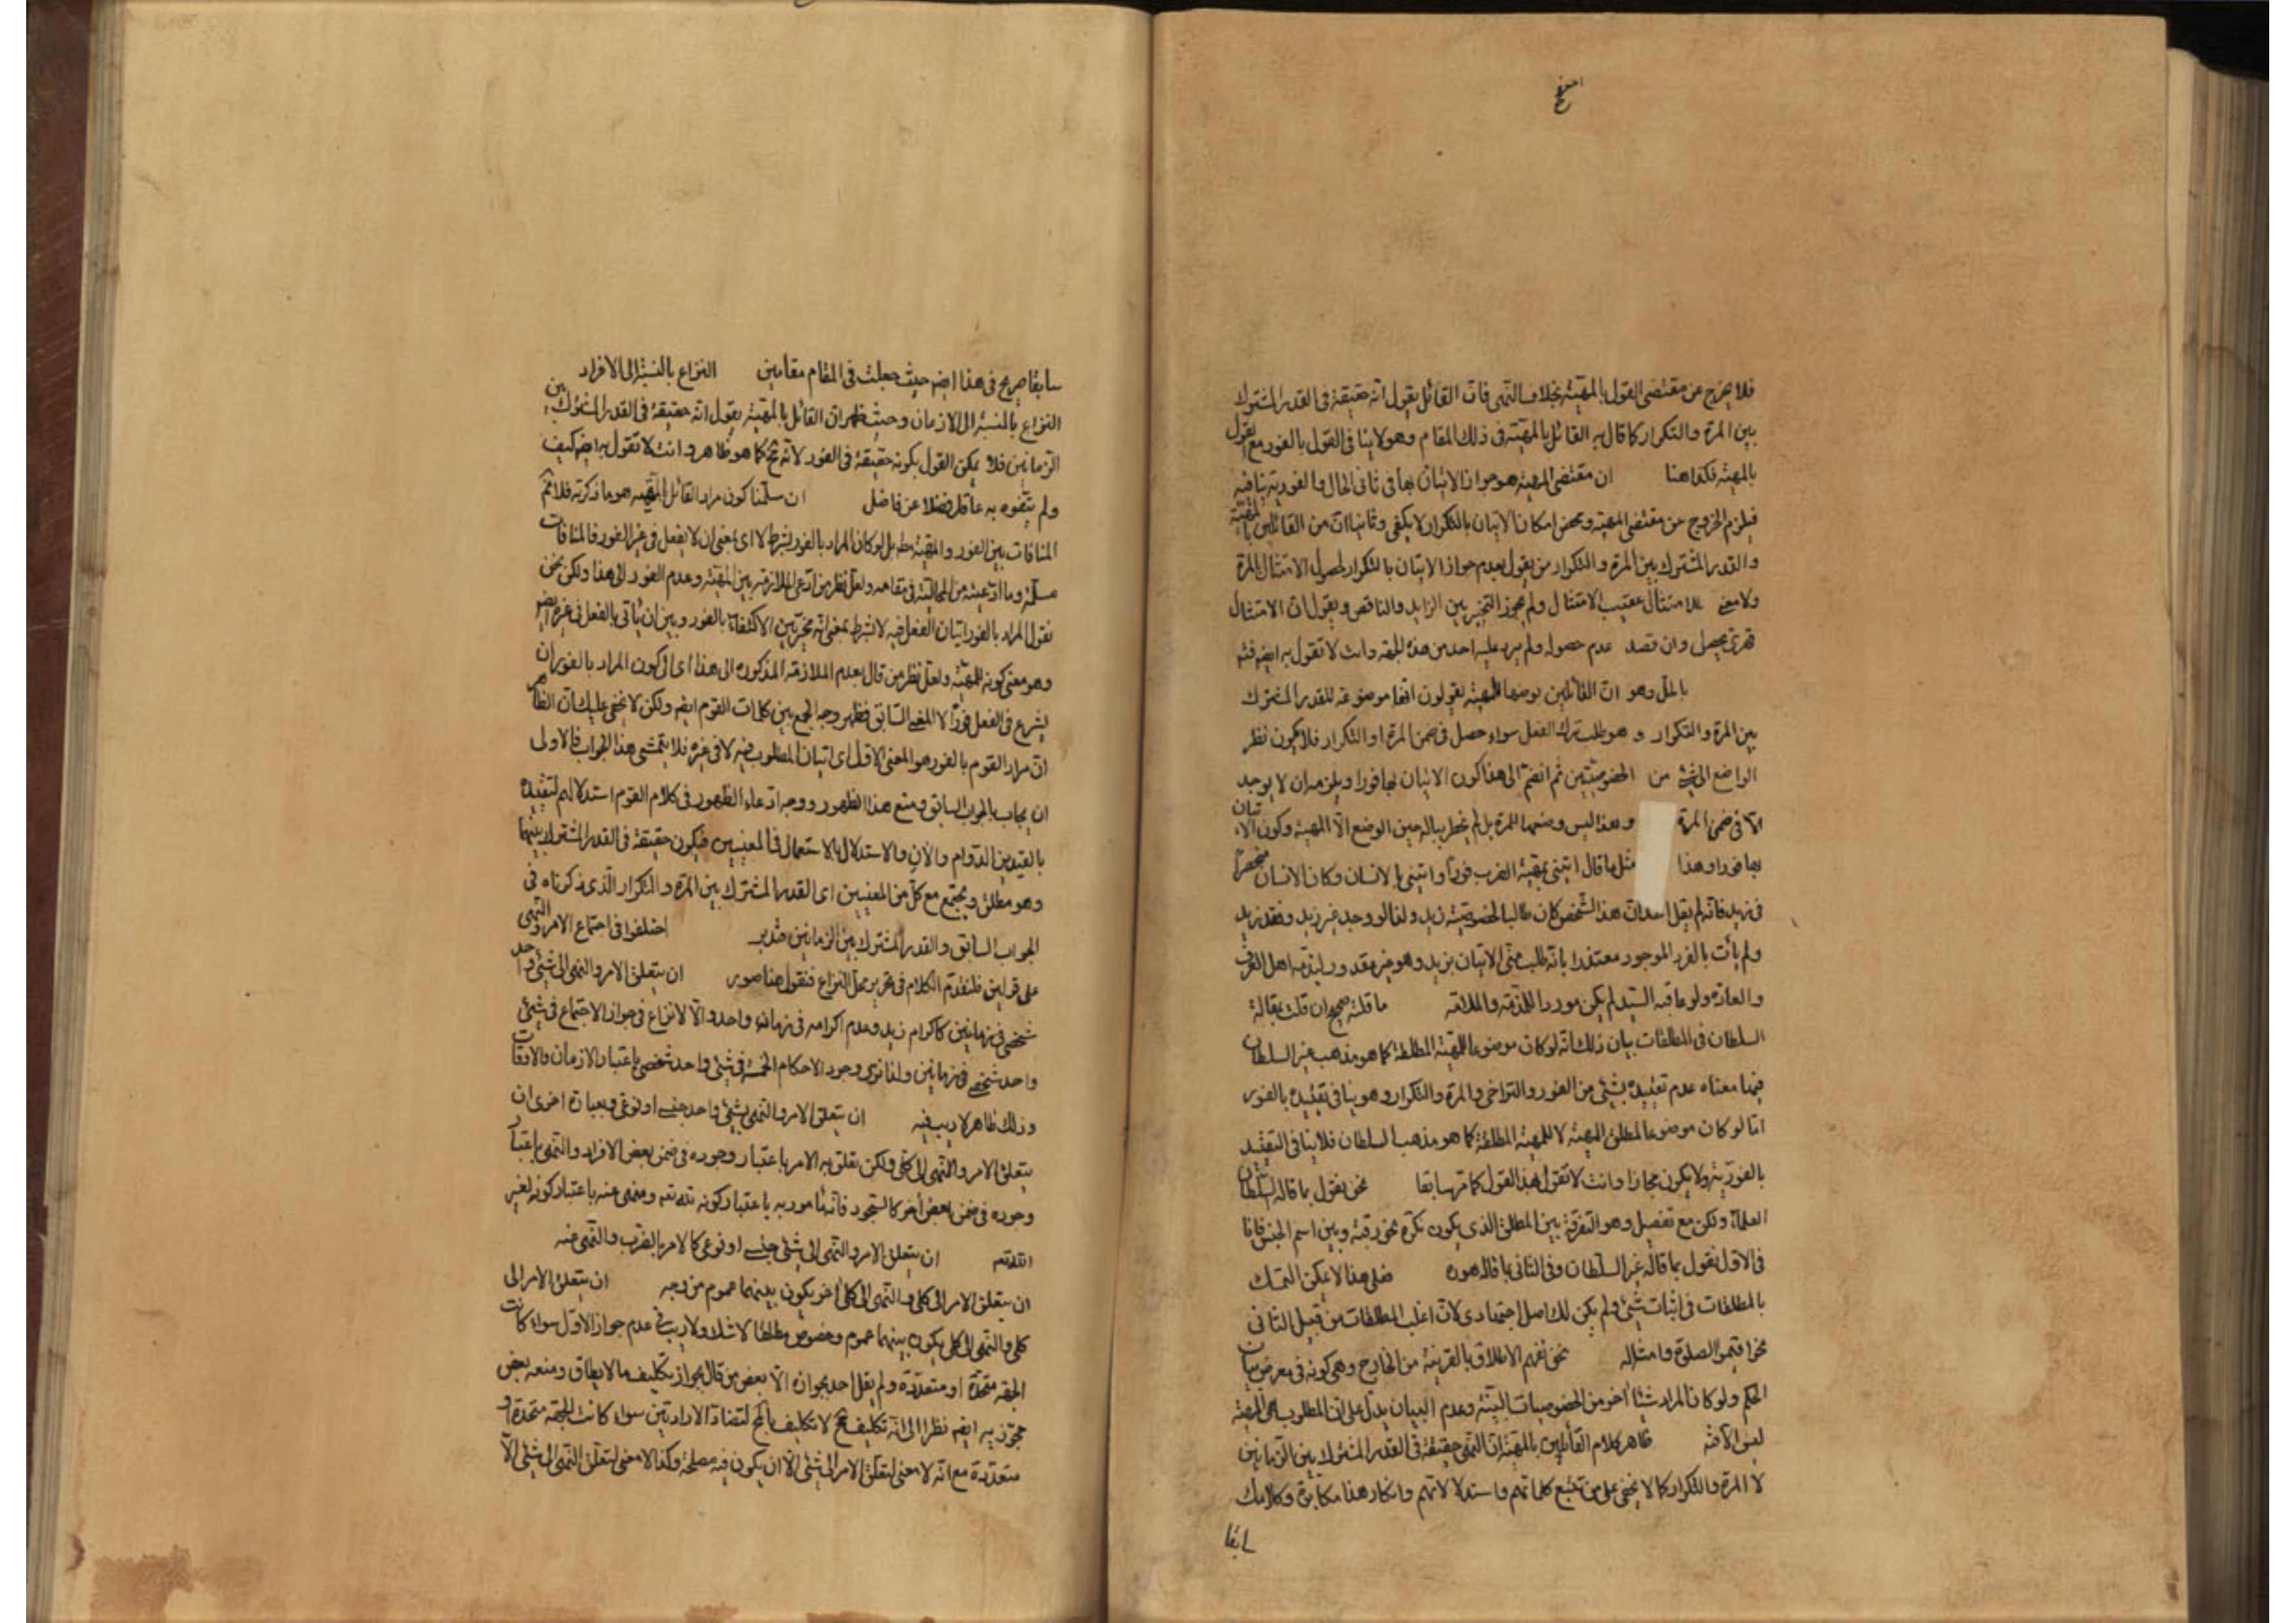 فلا يخرج عن مقتضى القول بالمهية بخلاف النهى فان القائل يقول انه حقيقة فى القدر المشترك
بين المرة والتكرار كما قال به القائل بالمهية فى ذلك المقام وهو لا ينافى القول بالفور مع القول
بالمهية فكذا هنا ان مقتضى المهية هو جواز الاتيان بها فى ثانى الحال والفورية تنافيه
فيلزم الخروج عن مقتضى المهية ومحض امكان الاتيان بالتكرار لا يكفى وثانيا ان من القائلين بالمهية
والقدر المشترك بين المرة والتكرار من يقول بعدم جواز الاتيان بالتكرار لحصول الامتثال بالمرة
ولا معنى للامتثال عقيب الامتثال ولم يجوز التخيير بين الزايد والناقص ويقول ان الامتثال
قهرى يحصل وان قصد عدم حصوله ولم يرد عليه احد من هذه الجهة وانت لا تقول به ايضا فتم
بالحل وهو ان القائلين بوضعها للمهية يقولون انها موضوعة للقدر المشترك
بين المرة والتكرار و هو طلب ترك الفعل سواء حصل فى ضمن المرة او التكرار فلا يكون نظر
الواضع الى شىء من الخصوصيتين ثم انضم الى هذا كون الاتيان بها فورا ويلزمه ان لا يوجد
الا فى ضمن المرة وهذا ليس وضعها للمرة بل لم يخطر بباله حين الوضع الا المهية وكون الاتيان
بها فورا وهذا مثل ما قال ائتنى بمهية الضرب فورا وائتنى بالانسان وكان الانسان منحصرا
فى زيد فانه لم يقل احد ان هذا الشخص كان طالبا لخصوصية زيد ولذا لو وجد غير زيد وفقد زيد
ولم يأت بالفرد الموجود معتذرا بانه طلب منى الاتيان بزيد وهو غير مقدور ليذمه اهل العرف
والعادة ولو عاقبه السيد لم يكن موردا للذمة والملامة ما قلته صحيح ان قلت بمقالة
السلطان فى المطلقات بيان ذلك انه لو كان موضوعا للمهية المطلقة كما هو مذهب غير السلطان
فيما معناه عدم تقييده بشىء من الفور والتراخى والمرة والتكرار وهو ينافى تقييده بالفور
اما لو كان موضوعا لمطلق المهية لا للمهية المطلقة كما هو مذهب السلطان فلا ينافى التقييد
بالفورية ولا يكون مجازا وانت لا تقول بهذا القول كما مر سابقا نحن نقول بما قاله السلطان
العلماء ولكن مع تفصيل وهو التفرقة بين المطلق الذى يكون نكرة نحو رقبة وبين اسم الجنس فانا
فى الاول نقول بما قاله غير السلطان وفى الثانى بما قاله هو فعلى هذا لا يمكن التمسك
بالمطلقات فى اثبات شىء ولم يكن لك اصل اجتهادى لان اغلب المطلقات من قبيل الثانى
نحو اقيموا الصلوة وامثاله نحن نفهم الاطلاق بالقرينة من الخارج وهى كونه فى معرض بيان
الحكم ولو كان المراد شيئا آخر من الخصوصيات لبينه وعدم البيان يدل على ان المطلوب هى المهية
ليس الا فتم ظاهر كلام القائلين بالمهية ان النهى حقيقة فى القدر المشترك بين الزمانين
لا المرة والتكرار كما لا يخفى على من تتبع كلماتهم واستدلالاتهم وانكار هذا مكابرة وكلامك
سابقا
سابقا صريح فى هذا ايضا حيث جعلت فى المقام مقامين النزاع بالنسبة الى الافراد
النزاع بالنسبة الى الازمان وحيث ظهر ان القائل بالمهية يقول انه حقيقة فى القدر المشترك بين
الزمانين فلا يمكن القول بكونه حقيقة فى الفور لانه مح كما هو ظاهر وانت لا تقول به ايضا كيف
ولم يتفوه به عاقل فضلا عن فاضل ان سلمنا كون مراد القائل بالمهية هو ما ذكرته فلا نم
المنافات بين الفور والمهية مط بل لو كان المراد بالفور بشرط لا اى بمعنى ان لا يفعل فى غير الفور فالمنافات
مسلمة وما ادعيته من المحالية فى مقامه ولعل نظر من ادعى الملازمة بين المهية وعدم الفور الى هذا ولكن نحن
نقول المراد بالفور اتيان الفعل فيه لا بشرط بمعنى انه مخير بين الاكتفاء بالفور وبين ان يأتى بالفعل فى غيره ايضا
وهو معنى كونه للمهية ولعل نظر من قال بعدم الملازمة المذكورة الى هذا اى الى كون المراد بالفور ان
يشرع فى الفعل فورا لا المعنى السابق فظهر وجه الجمع بين كلمات القوم ايضا ولكن لا يخفى عليك ان الظاهر
ان مراد القوم بالفور هو المعنى الاول اى اتيان المطلوب فيه لا فى غيره فلا يتمشى هذا الجواب فالاولى
ان يجاب بالجواب السابق ومنع هذا الظهور ووجه ادعاء الظهور فى كلام القوم استدلالهم لتقييده
بالقيدين الدوام والان والاستدلال بالاستعمال فى المعنيين فيكون حقيقة فى القدر المشترك بينهما
وهو مطلق ويجتمع مع كل من المعنيين اى القدر المشترك بين المرة والتكرار الذى ذكرناه فى
الجواب السابق والقدر المشترك بين الزمانين فتدبر اختلفوا فى اجتماع الامر والنهى
على قولين فلنقدم الكلام فى تحرير محل النزاع فنقول هنا صور ان يتعلق الامر والنهى الى شىء واحد
شخصى فى زمانين كاكرام زيد وعدم اكرامه فى زمان واحد والا لا نزاع فى جواز الاجتماع فى شىء
واحد شخصى فى زمانين ولذا نرى وجود الاحكام الخمسة فى شىء واحد شخصى باعتبار الازمان والاوقات
وذلك ظاهر لا ريب فيه ان يتعلق الامر والنهى بشىء واحد جنسى او نوعى وبعبارة اخرى ان
يتعلق الامر والنهى الى كلى ولكن تعلق به الامر باعتبار وجوده فى ضمن بعض الافراد والنهى باعتبار
وجوده فى ضمن بعض آخر كالسجود فانه مأمور به باعتبار كونه لله تعه ومنهى عنه باعتبار كونه لغير
الله تعه ان يتعلق الامر والنهى الى شىء جنسى او نوعى كالامر بالضرب والنهى عنه
ان يتعلق الامر الى كلى والنهى الى كلى آخر يكون بينهما عموم من وجه ان يتعلق الامر الى
كلى والنهى الى كلى يكون بينهما عموم وخصوص مطلقا لا شك ولا ريب فى عدم جواز الاول سواء كانت
الجهة متحدة او متعددة ولم يقل احد بجوازه الا بعض من قال بجواز تكليف ما لا يطاق ومنعه بعض
مجوزيه ايضا نظرا الى انه تكليف مح لا تكليف بالمح لتضاد الارادتين سواء كانت الجهة متحدة او
متعددة مع انه لا معنى لتعلق الامر الى شىء الا ان يكون فيه مصلحة وكذا لا معنى لتعلق النهى الى شىء الا